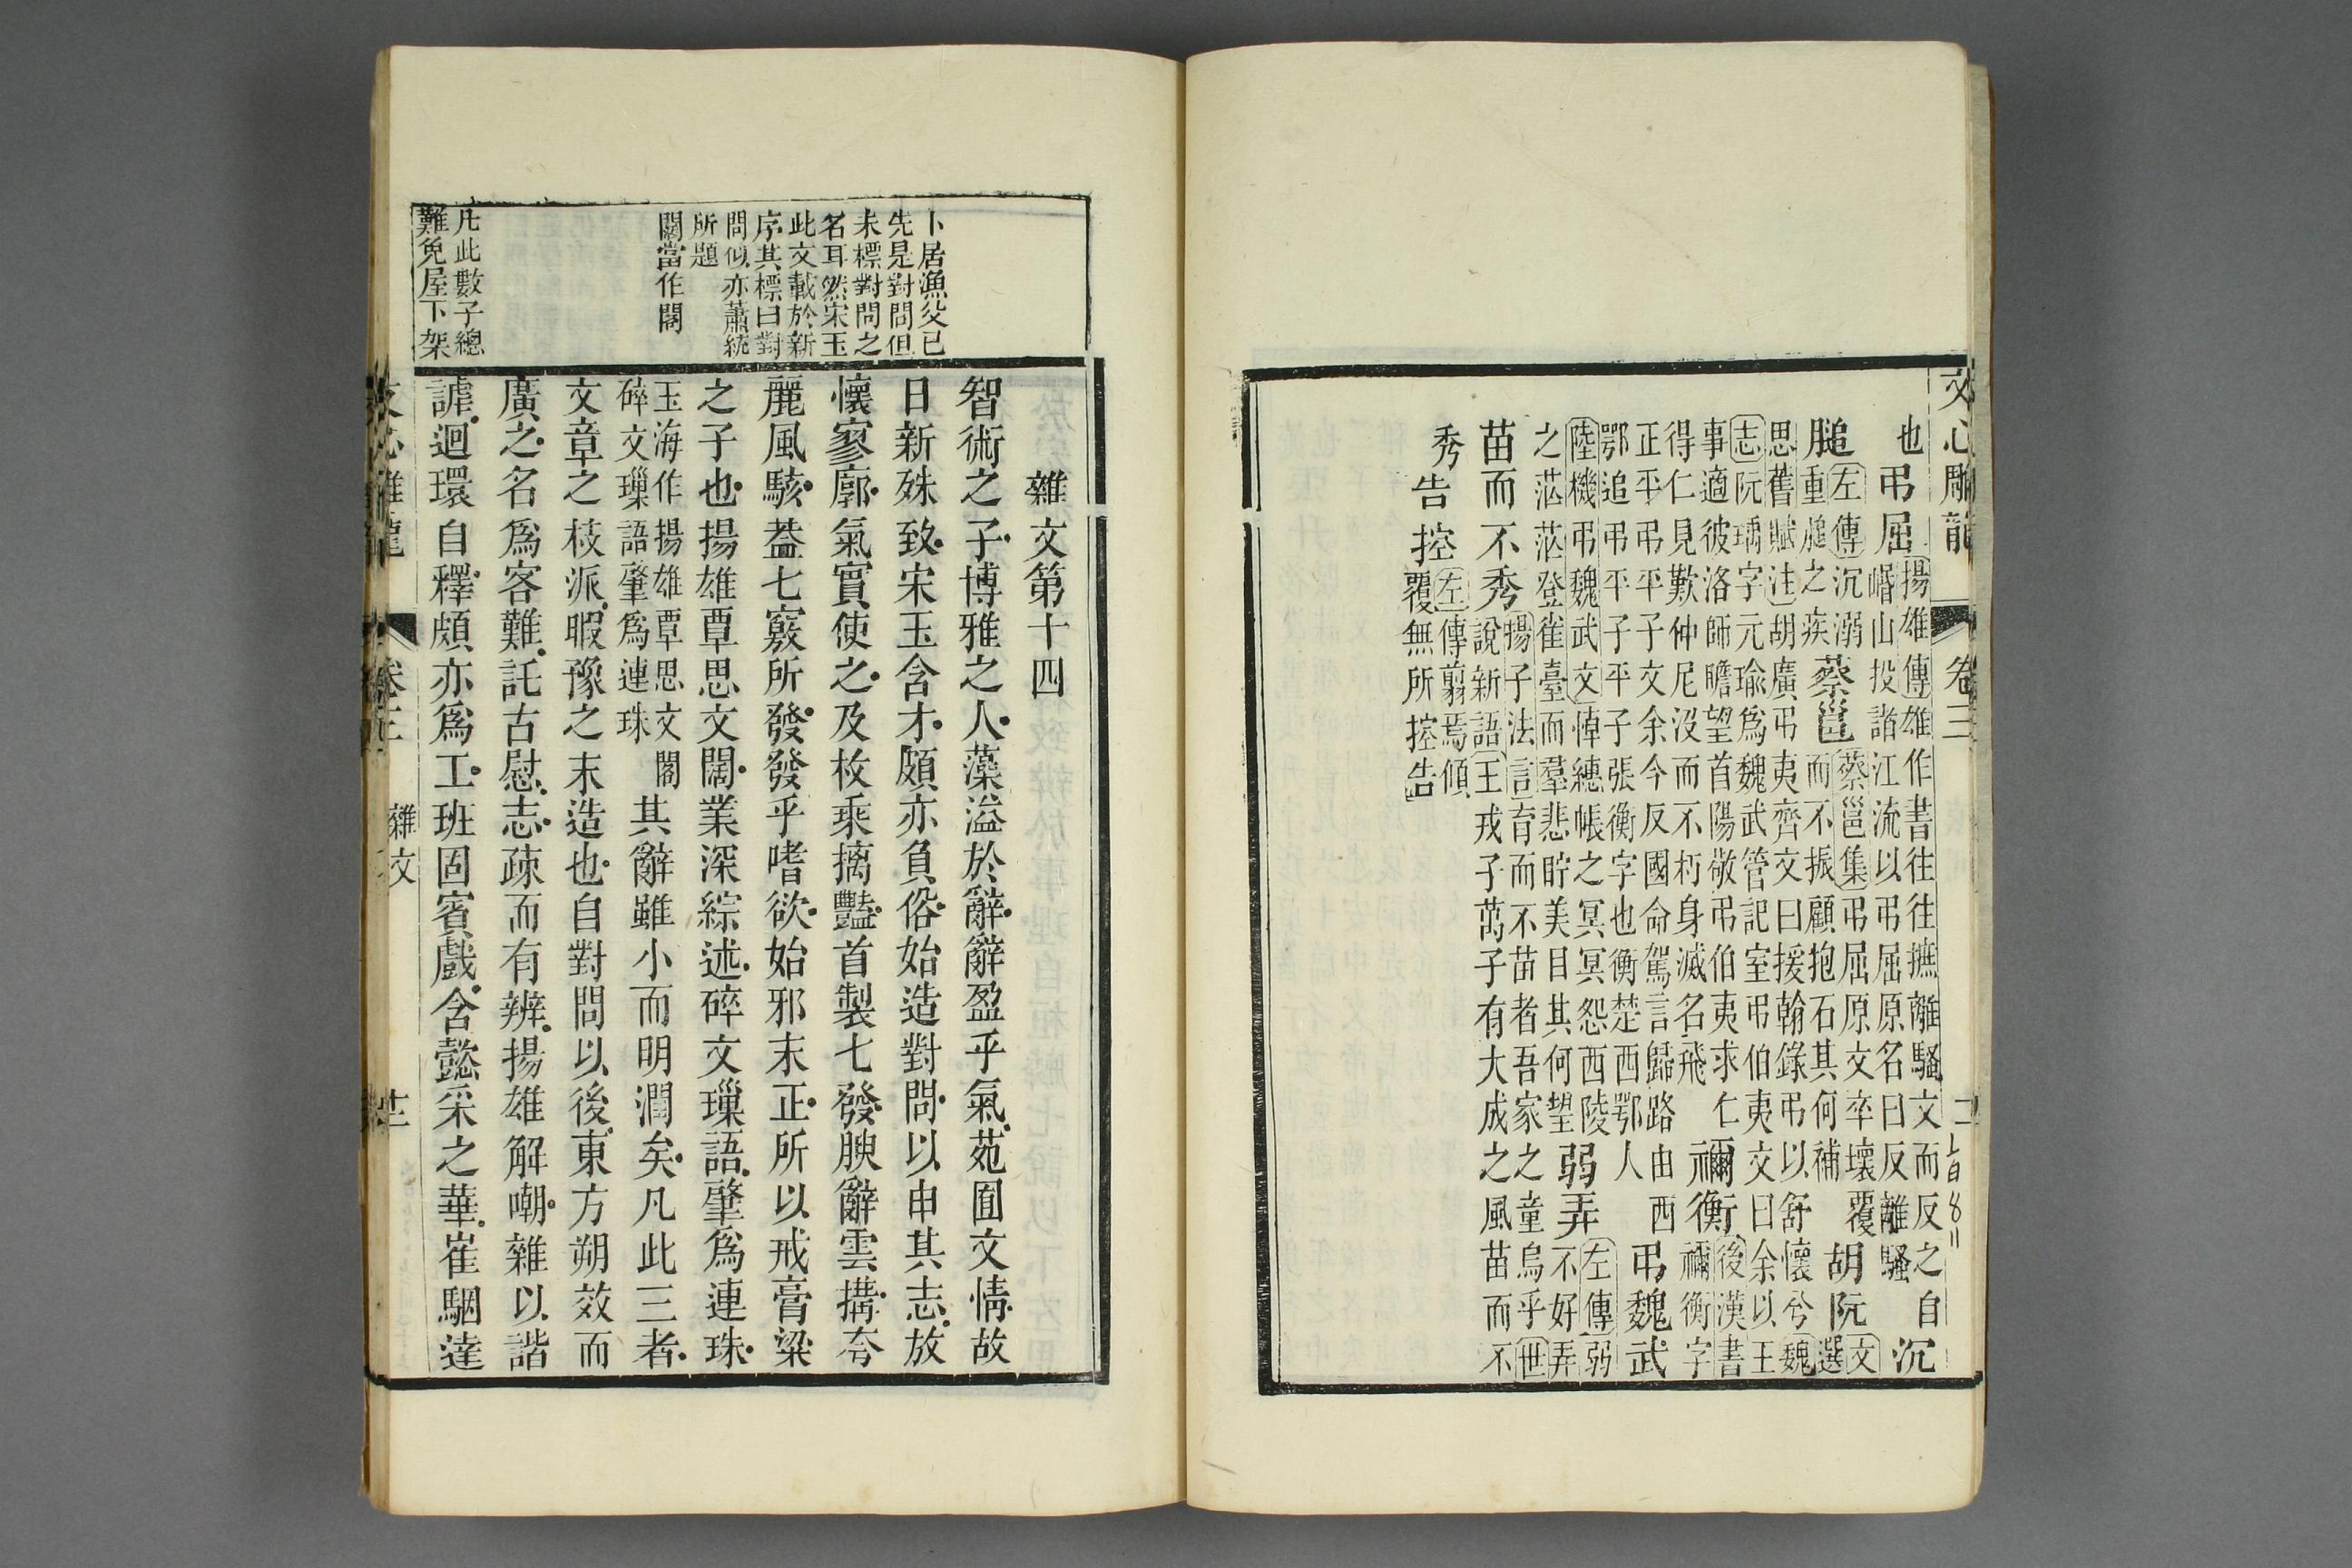 文心雕龍 卷三 二
也 弔屈 揚雄傳雄作書往往摭離騷文而反之自
㟭山投諸江流以弔屈原名曰反離騷 沉
膇 左傳沉溺
重膇之疾 蔡邕 蔡邕集弔屈原文卒壞覆
而不振顧抱石其何補 胡阮 文
選
思舊賦注胡廣弔夷齊文曰援翰錄弔以舒懷兮魏
志阮瑀字元瑜爲魏武管記室弔伯夷文曰余以王
事適彼洛師瞻望首陽敬弔伯夷求仁
得仁見歎仲尼沒而不朽身滅名飛 禰衡 後漢書
禰衡字
正平弔平子文余今反國命駕言歸路由西
鄂追弔平子平子張衡字也衡楚西鄂人 弔魏武
陸機弔魏武文悼繐帳之冥冥怨西陵
之茫茫登雀臺而羣悲貯美目其何望 弱弄 左傳弱
不好弄
苗而不秀 揚子法言育而不苗者吾家之童烏乎世
說新語王戎子萬子有大成之風苗而不
秀
告控 左傳翦焉傾
覆無所控告
卜居漁父已
先是對問但
未標對問之
名耳然宋玉
此文載於新
序其標曰對
問似亦蕭統
所題
闊當作閣
凡此數子總
難免屋下架
雜文第十四
智術之子博雅之人藻溢於辭辭盈乎氣苑囿文情故
日新殊致宋玉含才頗亦負俗始造對問以申其志放
懷寥廓氣實使之及枚乘摛豔首製七發腴辭雲搆夸
麗風駭蓋七竅所發發乎嗜欲始邪末正所以戒膏粱
之子也揚雄覃思文闊業深綜述碎文璅語肇爲連珠
玉海作揚雄覃思文閣
碎文璅語肇爲連珠 其辭雖小而明潤矣凡此三者
文章之枝派暇豫之末造也自對問以後東方朔效而
廣之名爲客難託古慰志疎而有辨揚雄解嘲雜以諧
謔迴環自釋頗亦爲工班固賓戲含懿采之華崔駰達
文心雕龍 卷三 雜文